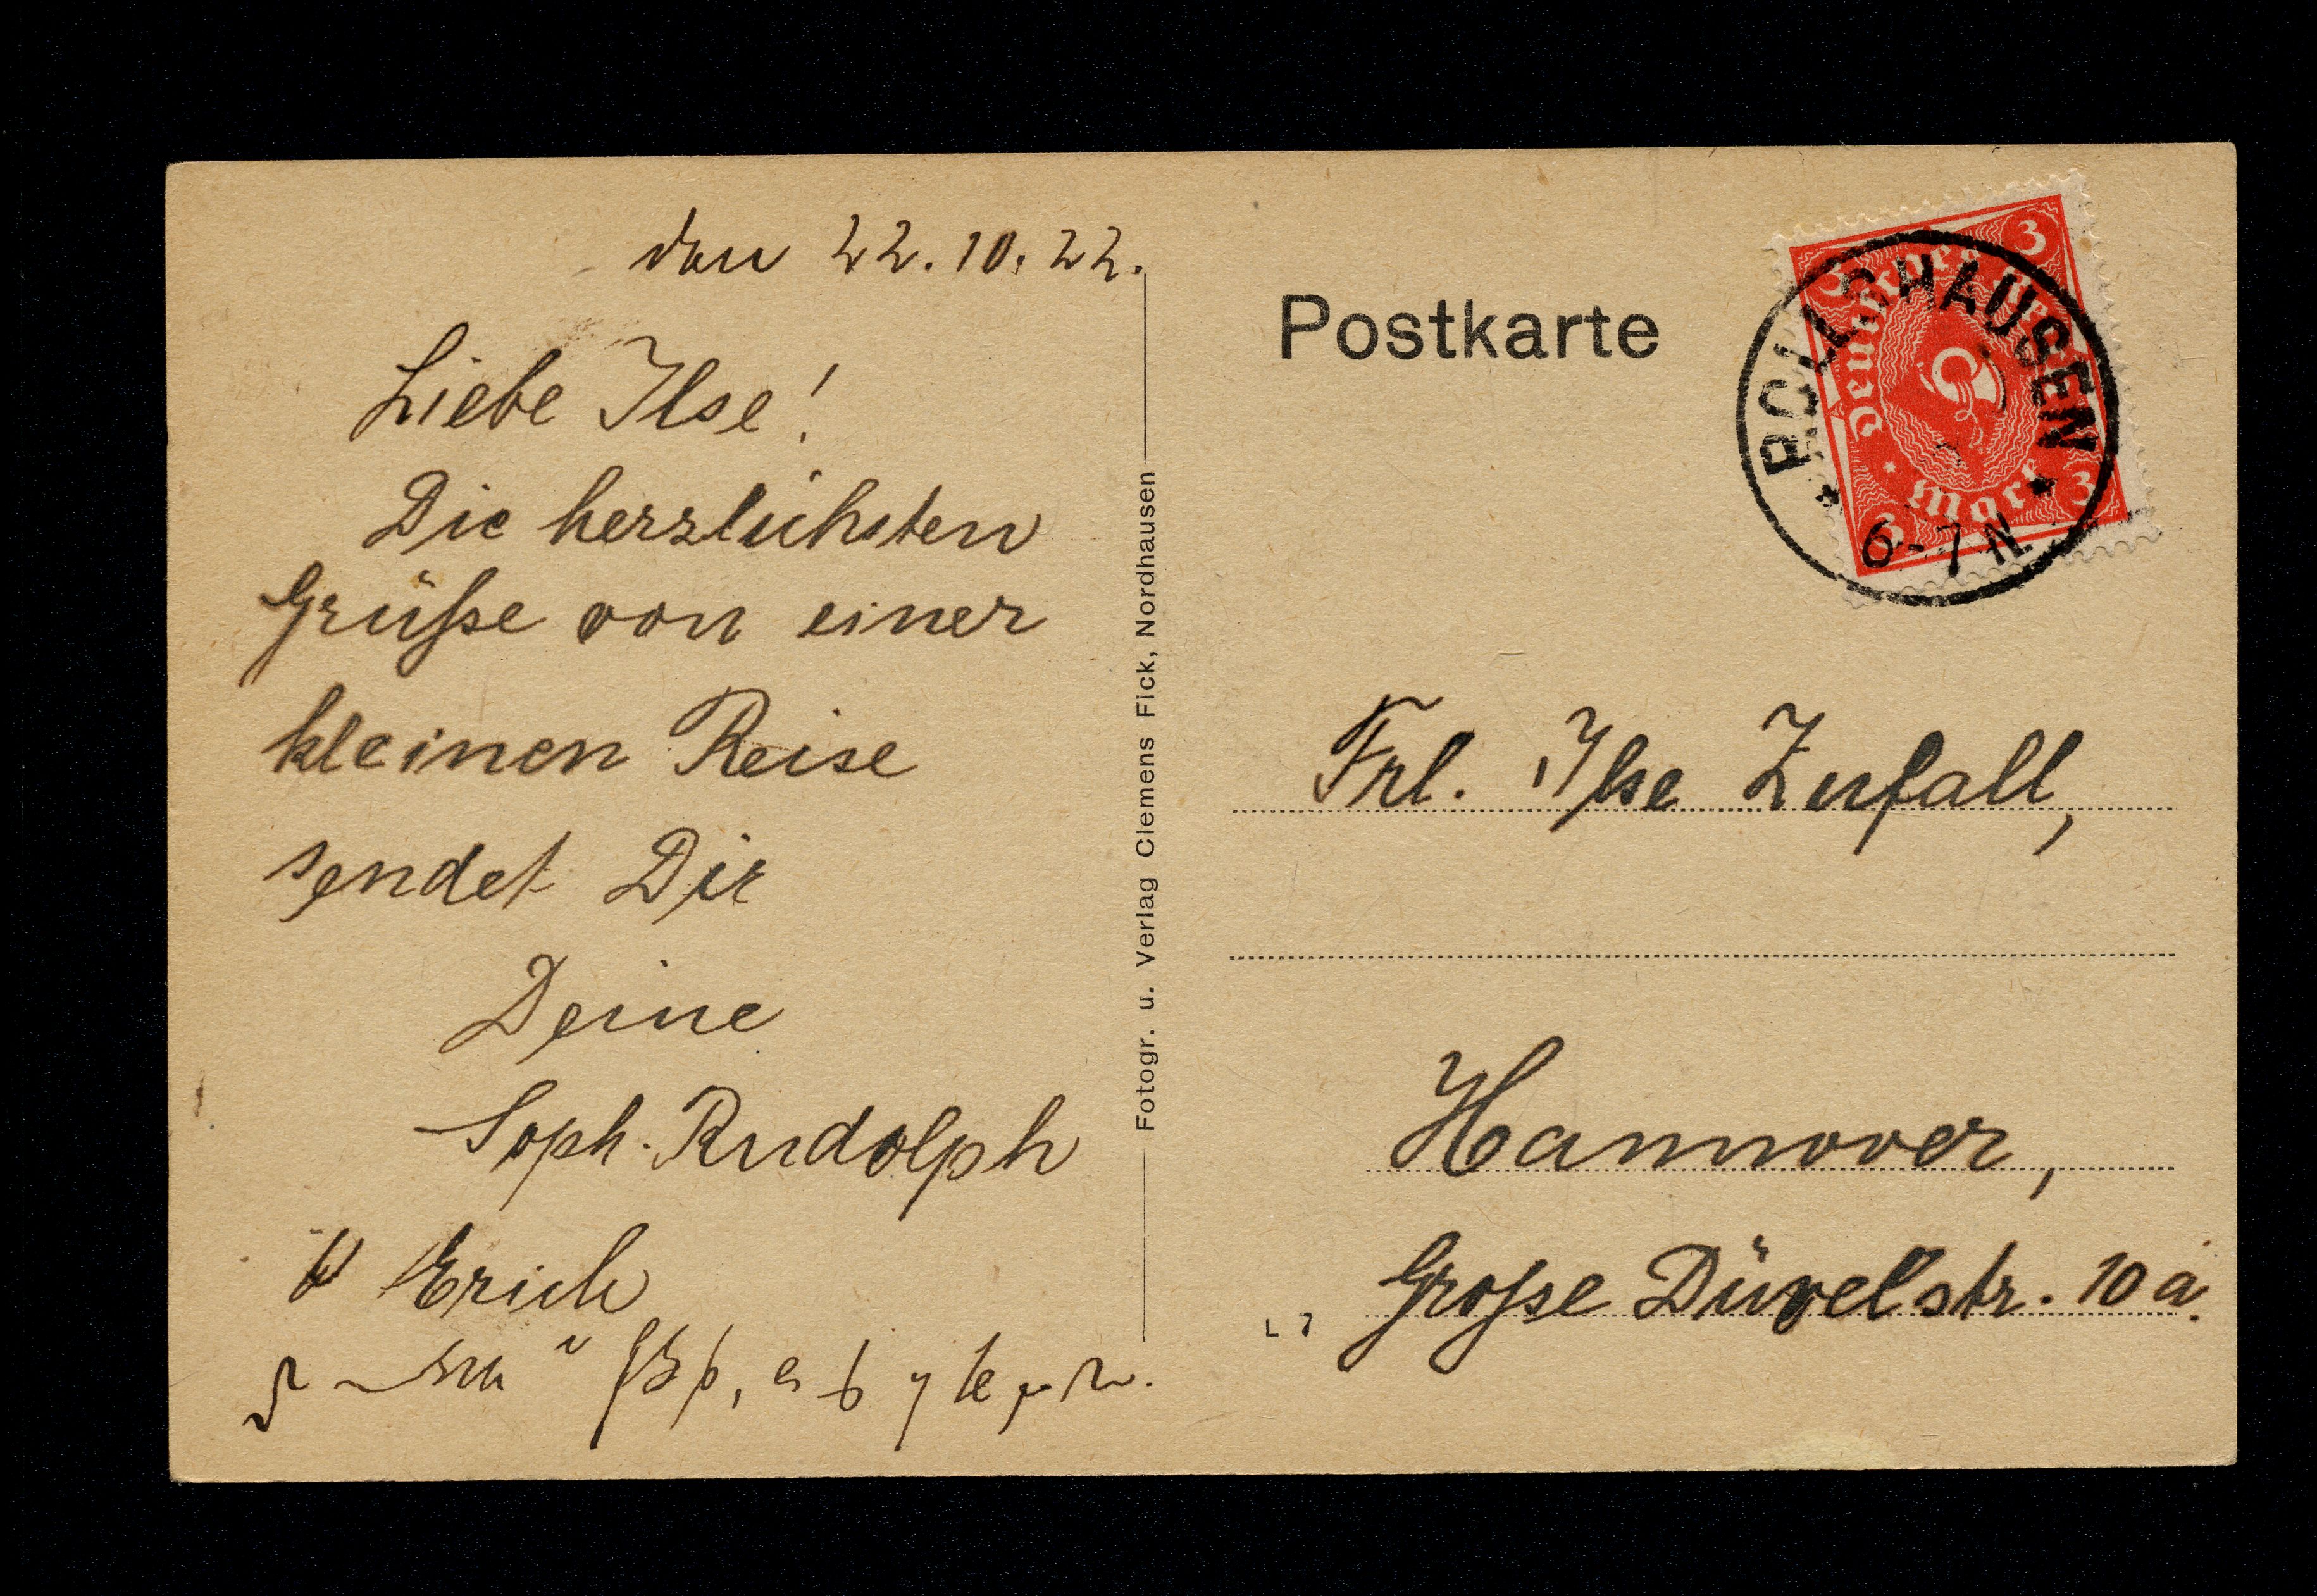 den 22.10.22.
Liebe Ilse!
Die herzlichsten
Grüße von einer
kleinen Reise
sendet Dir
Deine
Soph. Rudolph
Erich
Fotogr. u. Verlag Clemens Fick, Nordhausen
Postkarte
3 3
Deutsches Reich
Mark
3 3
BOLLSHAUSEN
6-7N
Frl. Ilse Zufall,
Hannover,
Große Düvelstr. 10a.